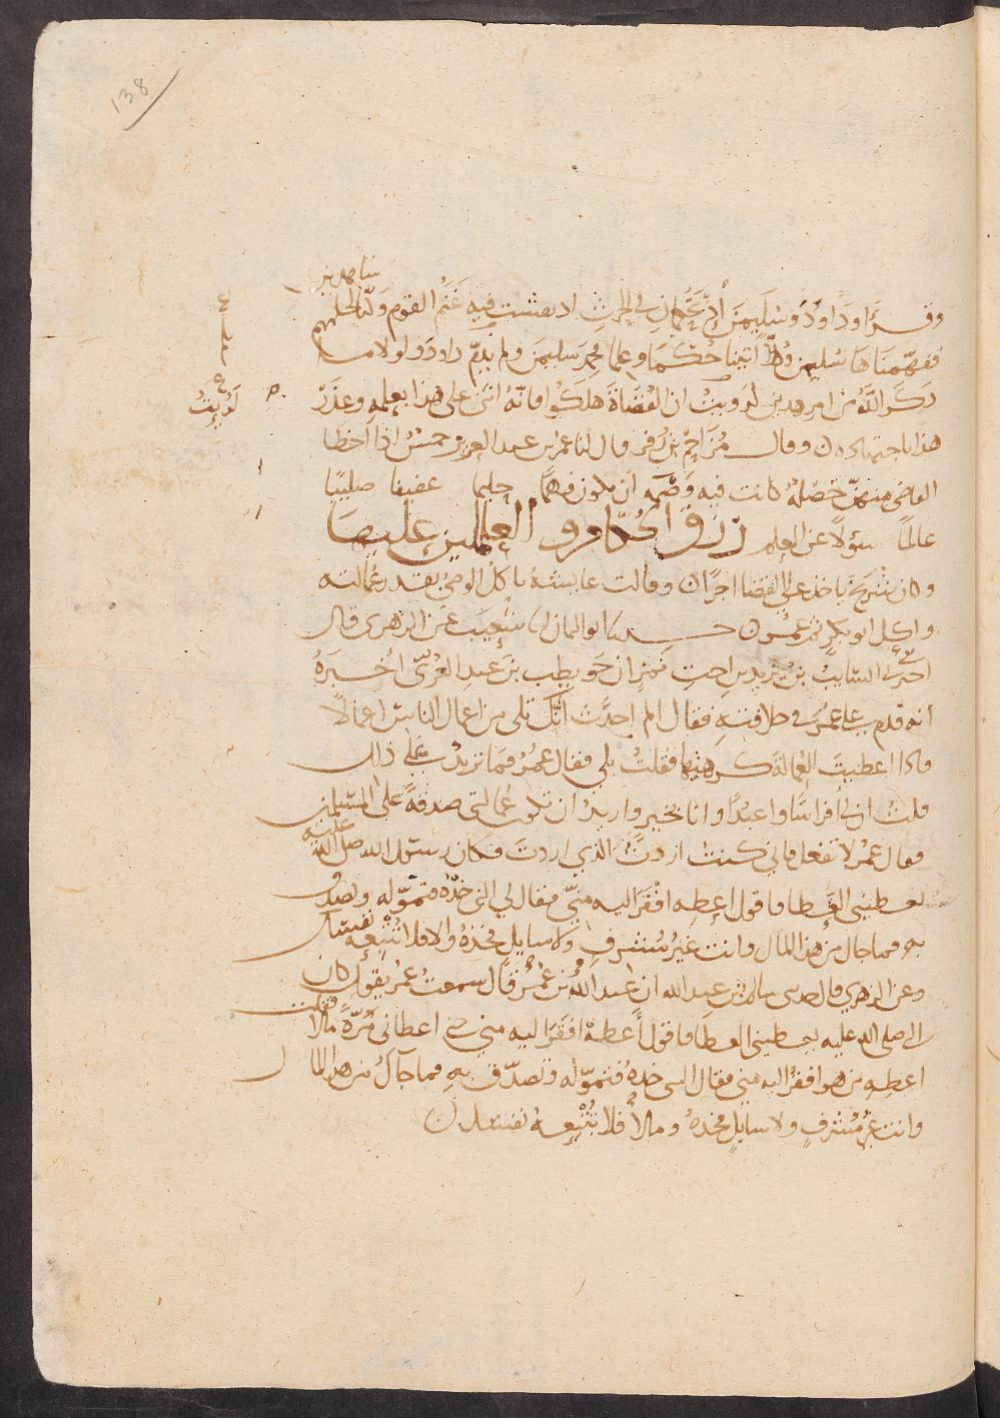 138
شاهدين
وقرأ وداود وسليمن إذ يحكمان في الحرث اذ نفشت فيه غنم القوم وكنا لحكمهم
ففهمناها سليمن وكلا اتينا حكما وعلما فحمد سليمن ولم يلم داود ولولا ما
ذكر الله من امر هذين لرويت ان القضاة هلكوا فانه اثنى على هذا بعلمه وعذر
لرأيت
هذا باجتهاده وقال مزاحم بن زفر قال لنا عمر بن عبد العزيز خمس اذا اخطا
القاضي منهن خصلة كانت فيه وصمة ان يكون فهما حليما عفيفا صليبا
عالما سؤلا عن العلم رزق الحكام و العاملين عليها
وكان شريح ياخذ على القضا اجرا وقالت عايشة ياكل الوصي بقدر عمالته
واكل ابو بكر وعمر حدثنا ابو اليمان انا شعيب عن الزهري قال
اخبرني السايب بن يزيد بن اخت نمر ان حويطب بن عبد العزى اخبره
انه قدم على عمر في خلافته فقال الم احدث انك تلي من اعمال الناس اعمالا
فاذا اعطيت العمالة كرهتها فقلت بلى فقال عمر فما تريد على ذلك
قلت ان لي افراسا واعبدا وانا بخير واريد ان تكون عمالتي صدقة على المسلمين
فقال عمر لا تفعل فاني كنت اردت الذي اردت فكان رسول الله صلى الله عليه
يعطيني العطا فاقول اعطه افقر اليه مني فقال لي النبي خذه فتموله وتصدق
به فما جاك من هذا المال وانت غير مشرف ولا سايل فخذه والا فلا تتبعه نفسك
وعن الزهري قال حدثني سالم بن عبد الله ان عبد الله بن عمر قال سمعت عمر يقول كان
النبي صلى الله عليه يعطيني العطا فاقول أعطه افقر اليه مني حتى اعطاني مرة مالا فقلت
اعطه من هو افقر اليه مني فقال النبي خذه فتموله وتصدق به فما جاك من هذا المال
وانت غير مشرف ولا سايل فخذه ومالا فلا تتبعه نفسك